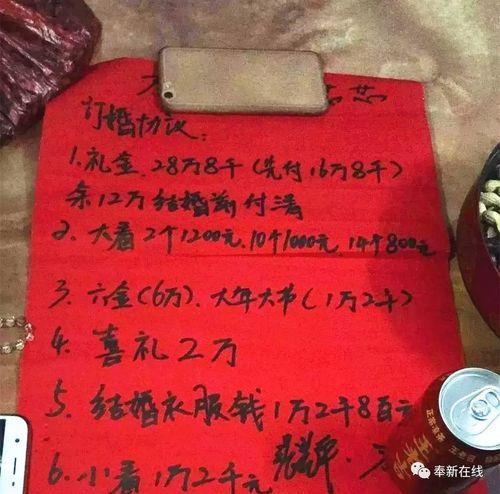 订婚协议：
1. 礼金 28万8千 (先付16万8千)
余12万 结婚前付清
2. 大看 2个1200元、10个1000元、14个800元
3. 六金(6万)、大年大节(1万2千)
4. 喜礼2万
5. 结婚衣服钱1万2千8百元
6. 小看1万2千元
王老吉
奉新在线